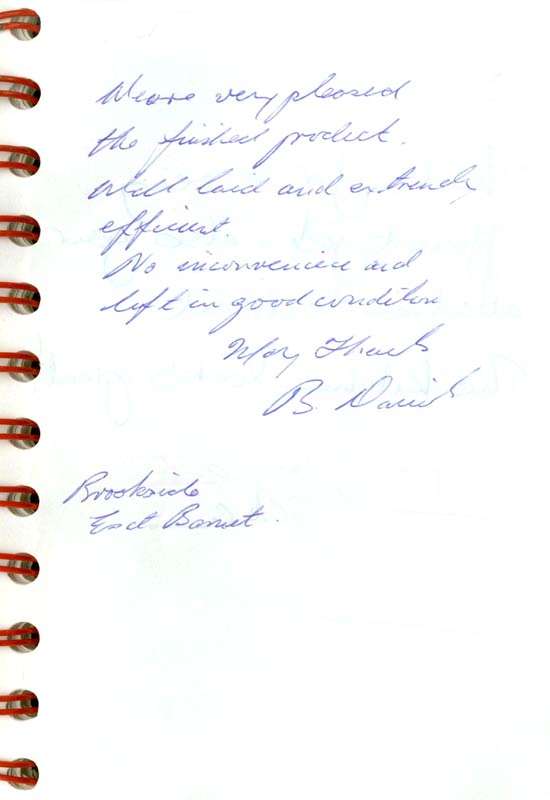 We are very pleased
the finished product.
Well laid and extremely
efficient.
No inconvenience and
left in good condition
Many Thanks
B.
Brookside
East Barnet.